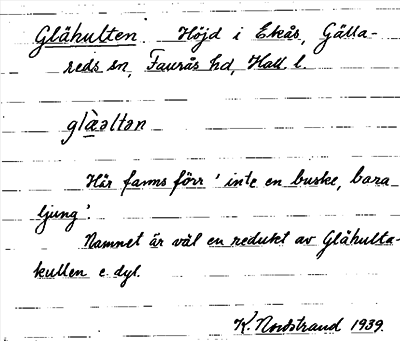 Glähulten. Höjd i Ekås, Gälla-
reds sn, Faurås hd, Hall. l.
glæ̀əltən
Här fanns förr 'inte en buske, bara
ljung'.
Namnet är väl en redukt av Glähulta-
kullen e. dyl.
K. Nordstrand 1939.